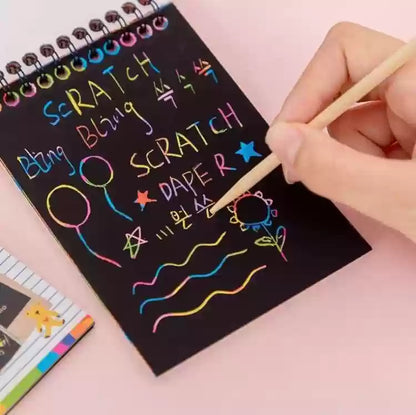 SCRATCH
Bling 쓱 슥 쓱
Bling SCRATCH
DAPER